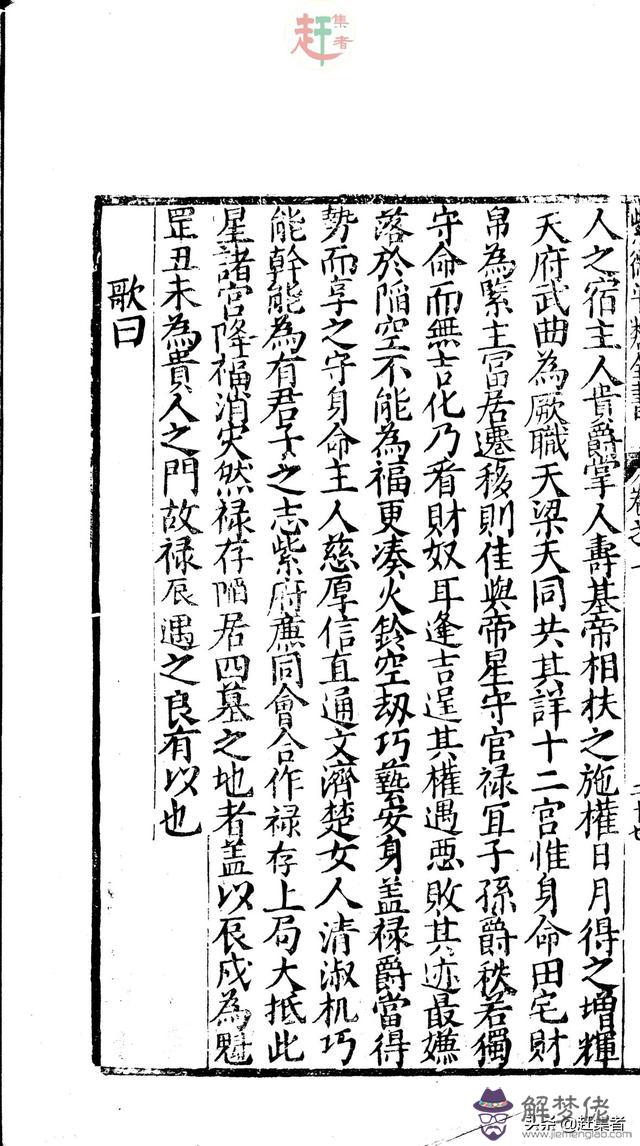 赶集者
人之宿主人貴爵掌人壽基帝相扶之施權日月得之增輝
天府武曲為厥職天梁天同共其詳十二宮惟身命田宅財
帛為緊主富居遷移則佳與帝星守官禄宜子孫爵秩若獨
守命而無吉化乃看財奴耳逢吉逞其權遇惡敗其迹最嫌
落於陥空不能為福更湊火鈴空刼巧藝安身盖禄爵當得
勢而享之守身命主人慈厚信直通文濟楚女人清淑机巧
能幹能為有君子之志紫府廉同會合作禄存上局大抵此
星諸宮降福消灾然禄存陥居四墓之地者盖以辰戍為魁
罡丑未為貴人之門故禄辰遇之良有以也
歌曰
解梦佬
www.jiemenglao.com
头条@赶集者